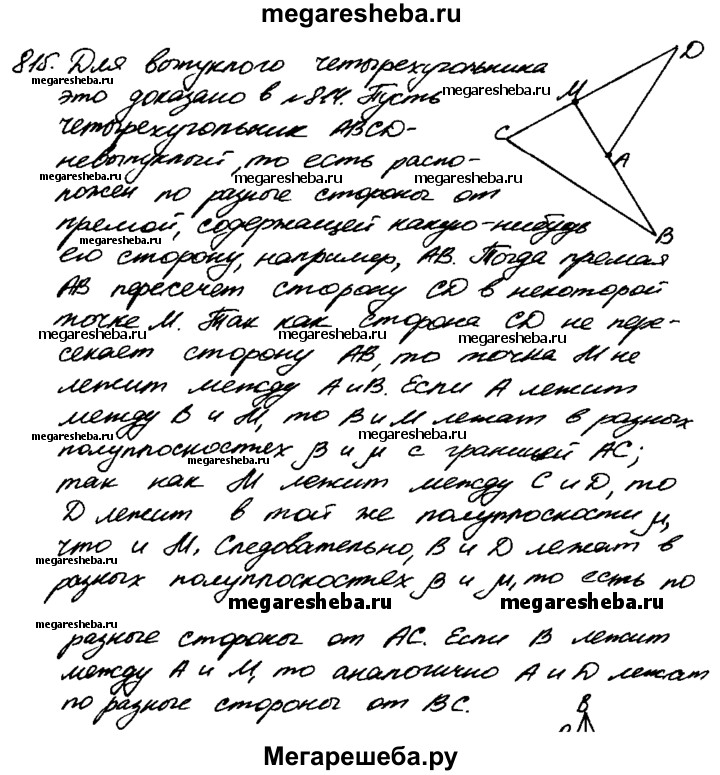 megaresheba.ru
815. Для выпуклого четырехугольника D
megaresheba.ru
это доказано в №814. Пусть megaresheba.ru M
четырехугольник ABCD- C
невыпуклый, то есть распо- A
megaresheba.ru megaresheba.ru megaresheba.ru
ложен по разные стороны от
прямой, содержащей какую-нибудь B
megaresheba.ru
его сторону, например, AB. Тогда прямая
AB пересечет сторону CD в некоторой
точке M. Так как сторона CD не пере-
megaresheba.ru megaresheba.ru megaresheba.ru
секает сторону AB, то точка M не
лежит между A и B. Если A лежит
между B и M, то B и M лежат в разных
megaresheba.ru megaresheba.ru
полуплоскостях β и μ с границей AC;
megaresheba.ru
так как M лежит между C и D, то
D лежит в той же полуплоскости μ,
что и M. Следовательно, B и D лежат в
megaresheba.ru megaresheba.ru
разных полуплоскостях β и μ, то есть по
megaresheba.ru megaresheba.ru
megaresheba.ru
разные стороны от AC. Если B лежит
между A и M, то аналогично A и D лежат
megaresheba.ru megaresheba.ru
по разные стороны от BC. B
Мегарешеба.ру